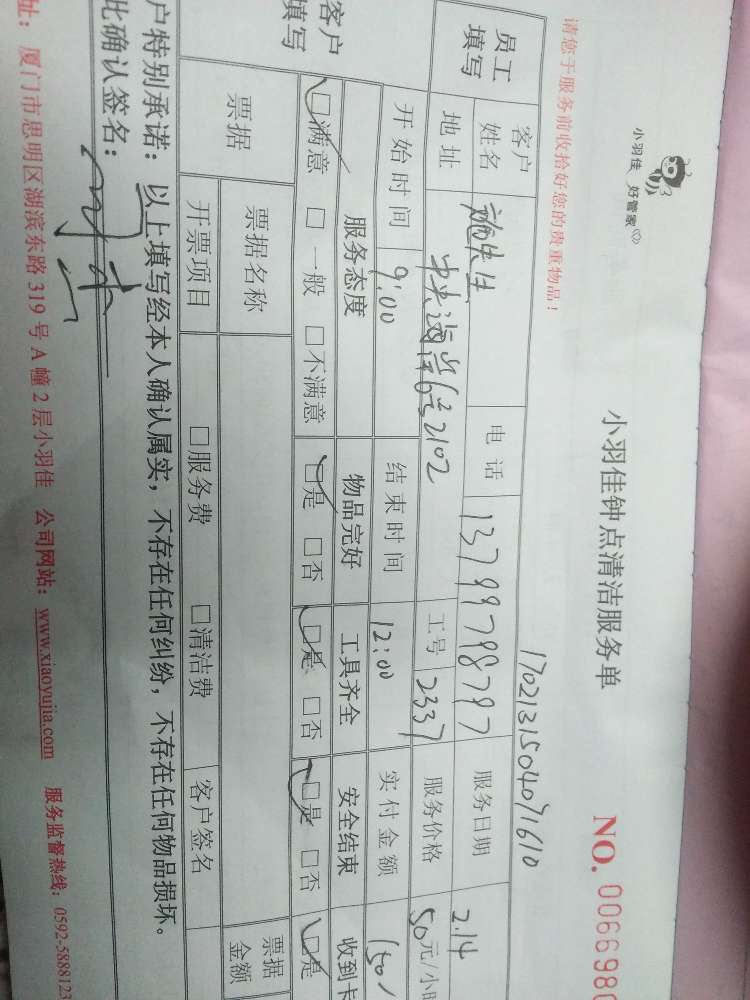 小羽佳 好管家
小羽佳钟点清洁服务单
NO. 0066980
请您于服务前收拾好您的贵重物品！
1702131504091610
员工填写
客户姓名 施先生 电话 13799798797 服务日期 2.14
地址 中央海岸6号2102 工号 2337 服务价格 50元/小时
开始时间 9:00 结束时间 12:00 实付金额 150
客户填写
服务态度 物品完好 工具齐全 安全结束 收到卡
□满意 □一般 □不满意 □是 □否 □是 □否 □是 □否 □是
票据 票据名称 票据金额
开票项目 □服务费 □清洁费 客户签名
户特别承诺：以上填写经本人确认属实，不存在任何纠纷，不存在任何物品损坏。
此确认签名：
址：厦门市思明区湖滨东路 319 号 A 幢 2 层小羽佳 公司网站：www.xiaoyujia.com 服务监督热线：0592-5888123